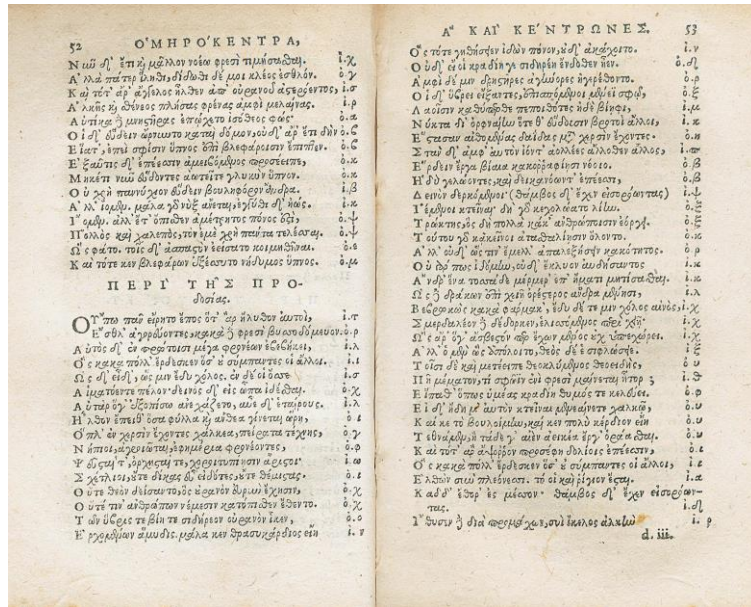 52 ΟΜΗΡΟΚΕΝΤΡΑ,
Νῦν δ' ἔτι καὶ μᾶλλον νοέω φρεσὶ τιμήσασθαι. ἰ.χ
Ἀλλὰ πάτερ δίδωθι δέ μοι κλέος ἐσθλόν. ὀ.γ
Καὶ τότ' ἄρ' ἄγγελος ἦλθεν ἀπ' οὐρανοῦ ἀστερόεντος, ἰ.σ
Ἀλκῆς καὶ σθένεος πλῆσας φρένας ἀμφὶ μελαίνας. ἰ.ρ
Αὐτίκα μνηστῆρας ἐπῴχετο ἰσόθεος φώς. ὀ.α
Οἱ δ' εὕδειν ὤρνυντο κατὰ δόμον, οὐδ' ἄρ' ἔτι δὴν ὀ.β
Εἵατ', ἐπεί σφισιν ὕπνος ἐπὶ βλεφάροισιν ἔπιπτεν. ὀ.β
Ἐξαῦτις δ' ἐπέεσσιν ἀμειβόμενος προσέειπε, ὀ.κ
Μηκέτι νῦν εὕδοντες ἀωτεῖτε γλυκὺν ὕπνον. ὀ.κ
Οὐ χρὴ παννύχιον εὕδειν βουληφόρον ἄνδρα. ἰ.β
Ἀλλ' ἴομεν. μάλα γὰρ νὺξ ἄνεται, ἐγγύθι δ' ἠώς. ἰ.κ
Ἴομεν. ἀλλ' ἔτ' ὄπισθεν ἀμέτρητος πόνος ἐστὶ, ὀ.ψ
Πολλὸς καὶ χαλεπὸς, τὸν ἐμὲ χρὴ πάντα τελέσσαι. ὀ.ψ
Ὣς φάτο. τοῖς δ' ἀσπαστὸν ἐείσατο κοιμηθῆναι. ὀ.
Καὶ τότε κεν βλεφάρων ἐξέσσυτο νήδυμος ὕπνος. ὀ.μ
ΠΕΡΙ ΤΗΣ ΠΡΟ-
δοσίας.
Οὔπω πᾶν εἴρητο ἔπος ὅτ' ἄρ' ἤλυθον αὐτοὶ, ἰ.τ
Ἐσθλ' ἀγορεύοντες, κακὰ δὲ φρεσὶ βυσσοδόμευον. ὀ.ρ
Αὐτὸς δ' ἐν πρώτοισι μέγα φρονέων ἐβεβήκει, ἰ.λ
Ὃς κακὰ πόλλ' ἔρδεσκεν ὅσ' οὐ σύμπαντες οἱ ἄλλοι. ἰ.
Αἱματόεντε πέλον· δεινὸς δ' εἰς ὦπα ἰδέσθαι. ὀ.χ
Αὐτὰρ ὅγ' ἐξοπίσω ἀνεχάζετο, αὖε δ' ἑταίρους. ἰ.λ
Ἦλθον ἔπειθ' ὅσα φύλλα καὶ ἄνθεα γίνεται ὥρῃ, ὀ.ι
Ὅπλ' ἐν χερσὶν ἔχοντες χάλκεα, πείρατα τέχνης, ὀ.γ
Νήπιοι, ἀγροιῶται, ἐφημέρια φρονέοντες, ὀ.φ
Ψεῦσταί τ', ὀρχησταί τε, χοροιτυπίῃσιν ἄριστοι· ἰ.ω
Σχέτλιοι, οὔτε δίκας εὖ εἰδότες, οὔτε θέμιστας. ὀ.ι
Οὔτε θεοὺς δείσαντες, οἳ οὐρανὸν εὐρὺν ἔχουσιν, ὀ.χ
Οὔτε τιν' ἀνθρώπων νέμεσιν κατόπισθεν ἔσεσθαι. ὀ.χ
Τῶν ὕβρις τε βίη τε σιδήρεον οὐρανὸν ἵκεν, ὀ.ο
Ἐρχομένων ἄμυδις. μάλα κεν θρασυκάρδιος εἴη ἰ.ν
Α ΚΑΙ ΚΕΝΤΡΩΝΕΣ. 53
Ὃς τότε γηθήσειεν ἰδὼν πόνον, οὐδ' ἀκάχοιτο. ἰ.ν
Οὐδ' εἴ οἱ κραδίη γε σιδηρέη ἔνδοθεν ἦεν. ὀ.δ
Ἀμφὶ δέ μιν μνηστῆρες ἀγήνορες ἠγερέθοντο. ὀ.ρ
Οἱ δ' ὕβρει εἴξαντες, ἐπισπόμενοι μένεϊ σφῷ, ὀ.ξ
Λαοῖσιν καθύπερθε πεποιθότες ἠδὲ βίηφι. ἰ.μ
Νύκτα δι' ὀρφναίην ὅτε θ' εὕδουσιν βροτοὶ ἄλλοι, ἰ.κ
Ἕστασαν αἰθομένας δαΐδας μετὰ χερσὶν ἔχοντες. ὀ.η
Στὰν δ' ἀμφ' αὐτὸν ἰόντ' ἀολλέες ἄλλοθεν ἄλλος, ἰ.π
Ἔρδειν ἔργα βίαια κακορραφίῃσι νόοιο. ὀ.β
Ἡδὺ γελώοντες, καὶ δεικανόωντ' ἐπέεσσι, ὀ.β
Δεινὸν δερκόμενοι· (θάμβος δ' ἔχεν εἰσορόωντας) ἰ.ψ
Ἱέμενοι κτεῖναι· δὴ γὰρ κεχολώατο λίην. ὀ.ξ
Τρώκτης, ὃς δὴ πολλὰ κάκ' ἀνθρώποισιν ἐώργει. ὀ.ξ
Τούτου γὰρ κἀκεῖνοι ἀτασθαλίῃσιν ὄλοντο. ὀ.κ
Ἀλλ' οὐδ' ὣς τιν' ἔμελλ' ἀπαλεξήσειν κακότητος. ὀ.ρ
Οὐ γάρ πως ἰδόμην, οὐδ' ἔκλυον αὐδήσαντος ἰ.κ
Ἄνδρ' ἕνα τοσσάδε μέρμερ' ἐπ' ἤματι μητίσασθαι. ἰ.κ
Ὡς δὲ δράκων ἐπὶ χειῇ ὀρέστερος ἄνδρα μένῃσι, ἰ.χ
Βεβρωκὼς κακὰ φάρμακ', ἔδυ δέ τε μιν χόλος αἰνὸς, ἰ.χ
Σμερδαλέον δὲ δέδορκεν, ἑλισσόμενος περὶ χειῇ· ἰ.χ
Τοῖσι δὲ καὶ μετέειπε θεοκλύμενος θεοειδὴς, ὀ.υ
Πῆ μέματον, τί σφῶϊν ἐνὶ φρεσὶ μαίνεται ἦτορ; ἰ.θ
Εἴπαθ' ὅπως ὑμέας κραδίη θυμός τε κελεύει. ὀ.φ
Εἰ δ' ἤδη μ' αὐτὸν κτεῖναι μενεαίνετε χαλκῷ, ὀ.υ
Καί κε τὸ βουλοίμην, καί κεν πολὺ κέρδιον εἴη ὀ.υ
Τεθνάμεν, ἢ τάδε γ' αἰὲν ἀεικέα ἔργ' ὁράασθαι. ὀ.υ
Καὶ τότ' ἄρ' ἄψορρον προσέφη δολίοις ἐπέεσσιν, ὀ.ι
Ὃς κακὰ πόλλ' ἔρδεσκεν ὅσ' οὐ σύμπαντες οἱ ἄλλοι, ἰ.
Ἐλθὼν σὺν πλεόνεσσι. τό οἱ καὶ ῥίγιον ἔσται. ἰ.α
Καδδ' ἔθορ' ἐς μέσσον· θάμβος δ' ἔχεν εἰσορόων-
τας. ἰ.δ
Ἴθυσεν δὲ διὰ προμάχων, συῒ εἴκελος ἀλκὴν ἰ.ρ
d. iii.